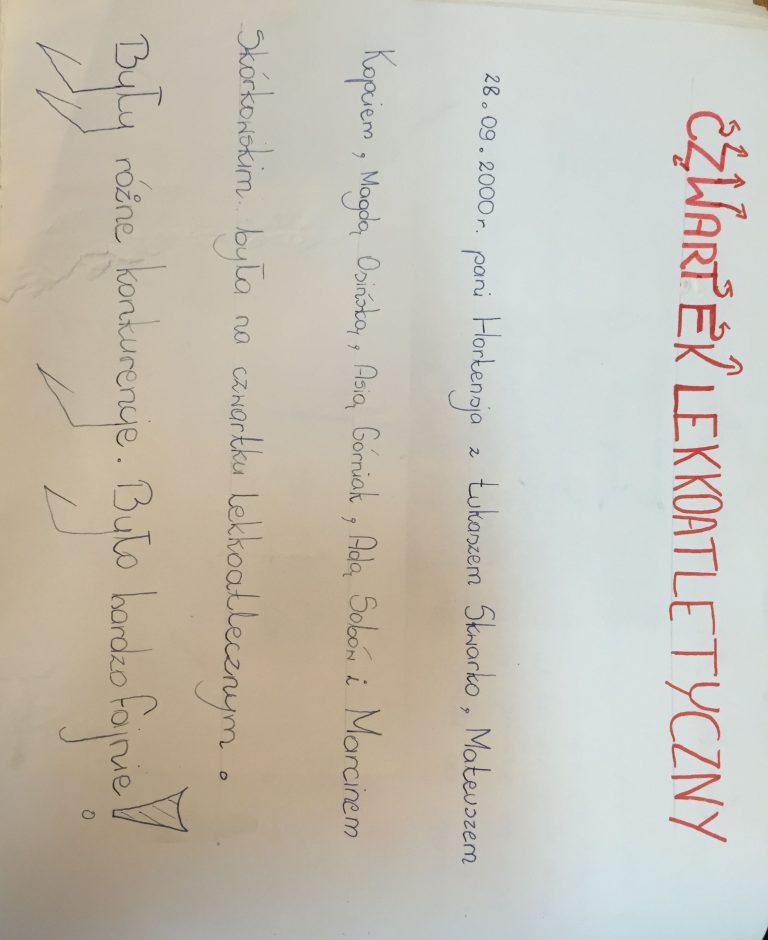 CZWARTEK LEKKOATLETYCZNY
28.09.2000r. pani Hortensja z Łukaszem Skwarko, Mateuszem
Kopciem, Magdą Osińską, Asią Górniak, Adą Sobów i Marcinem
Skórkowskim była na czwartku lekkoatlecznym.
Były różne konkurencje. Było bardzo fajnie!